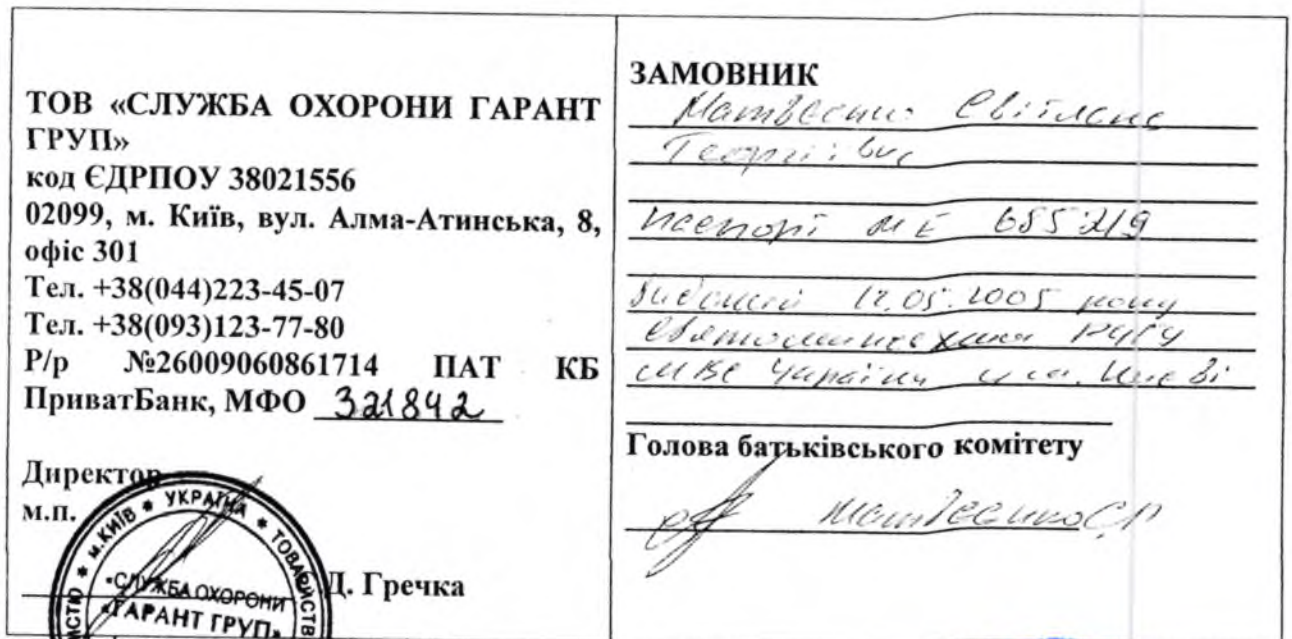 ТОВ «СЛУЖБА ОХОРОНИ ГАРАНТ
ГРУП»
код ЄДРПОУ 38021556
02099, м. Київ, вул. Алма-Атинська, 8,
офіс 301
Тел. +38(044)223-45-07
Тел. +38(093)123-77-80
Р/р №26009060861714 ПАТ КБ
ПриватБанк, МФО 321842
Директор
м.п.
Д. Гречка
* м.КИЇВ * УКРАЇНА *
«СЛУЖБА ОХОРОНИ
«ГАРАНТ ГРУП»
ЗАМОВНИК
Матвєєнко Світлана
Георгіївна
паспорт МЕ 685219
Виданий 12.05.2005 року
Святошинським РУГУ
МВС України в м. Києві
Голова батьківського комітету
Матвєєнко С.Г.